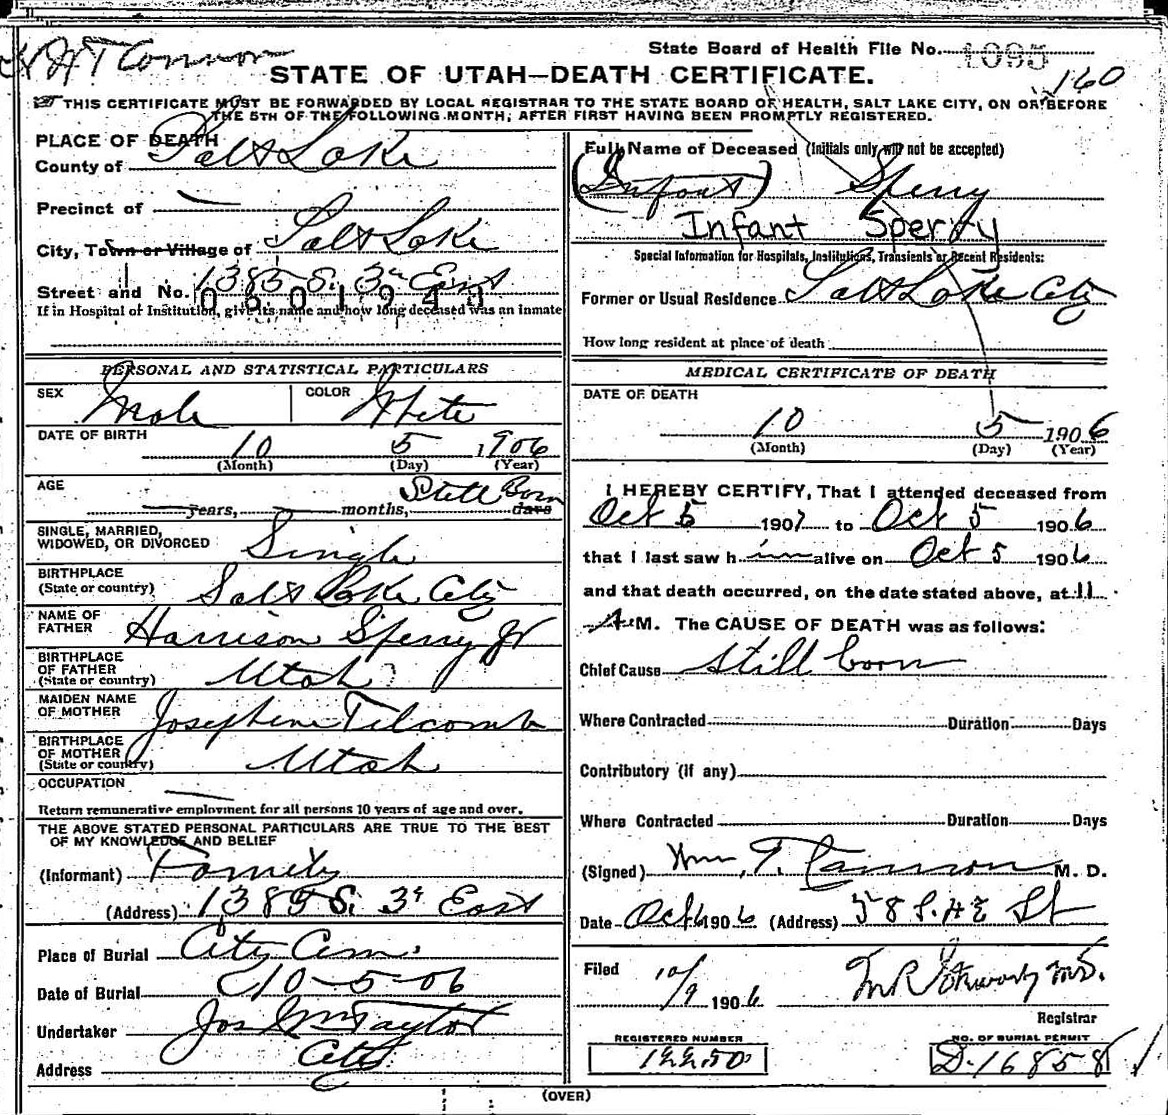 W H T Cannon
State Board of Health File No. 1095
160
STATE OF UTAH—DEATH CERTIFICATE.
THIS CERTIFICATE MUST BE FORWARDED BY LOCAL REGISTRAR TO THE STATE BOARD OF HEALTH, SALT LAKE CITY, ON OR BEFORE
THE 5TH OF THE FOLLOWING MONTH; AFTER FIRST HAVING BEEN PROMPTLY REGISTERED.
PLACE OF DEATH
County of Salt Lake
Precinct of —
City, Town or Village of Salt Lake
Street and No. 1385 S. 3d East
0601943
If in Hospital or Institution, give its name and how long deceased was an inmate
Full Name of Deceased (Initials only will not be accepted)
(Infant) Sperry
Infant Sperry
Special Information for Hospitals, Institutions, Transients or Recent Residents:
Former or Usual Residence Salt Lake City
How long resident at place of death
PERSONAL AND STATISTICAL PARTICULARS
SEX Male COLOR White
DATE OF BIRTH 10 5 1906
(Month) (Day) (Year)
AGE — years, — months, Still Born days
SINGLE, MARRIED,
WIDOWED, OR DIVORCED Single
BIRTHPLACE
(State or country) Salt Lake City
NAME OF
FATHER Harrison Sperry Jr
BIRTHPLACE
OF FATHER
(State or country) Utah
MAIDEN NAME
OF MOTHER Josephine Titcomb
BIRTHPLACE
OF MOTHER
(State or country) Utah
OCCUPATION —
Return remunerative employment for all persons 10 years of age and over.
THE ABOVE STATED PERSONAL PARTICULARS ARE TRUE TO THE BEST
OF MY KNOWLEDGE AND BELIEF
(Informant) Family
(Address) 1385 S. 3d East
Place of Burial City Cem.
Date of Burial 10-5-06
Undertaker Jos Wm Taylor
Address City
MEDICAL CERTIFICATE OF DEATH
DATE OF DEATH
10 5 1906
(Month) (Day) (Year)
I HEREBY CERTIFY, That I attended deceased from
Oct 5 1907 to Oct 5 1906
that I last saw him alive on Oct 5 1906
and that death occurred, on the date stated above, at 11
A.M. The CAUSE OF DEATH was as follows:
Chief Cause Still born
Where Contracted Duration Days
Contributory (if any)
Where Contracted Duration Days
(Signed) Wm. T. Cannon M. D.
Date Oct 6 1906 (Address) 58 S. 4 E St
Filed 10/9 1906 M.D.
Registrar
REGISTERED NUMBER
12250
NO. OF BURIAL PERMIT
D-16858
(OVER)